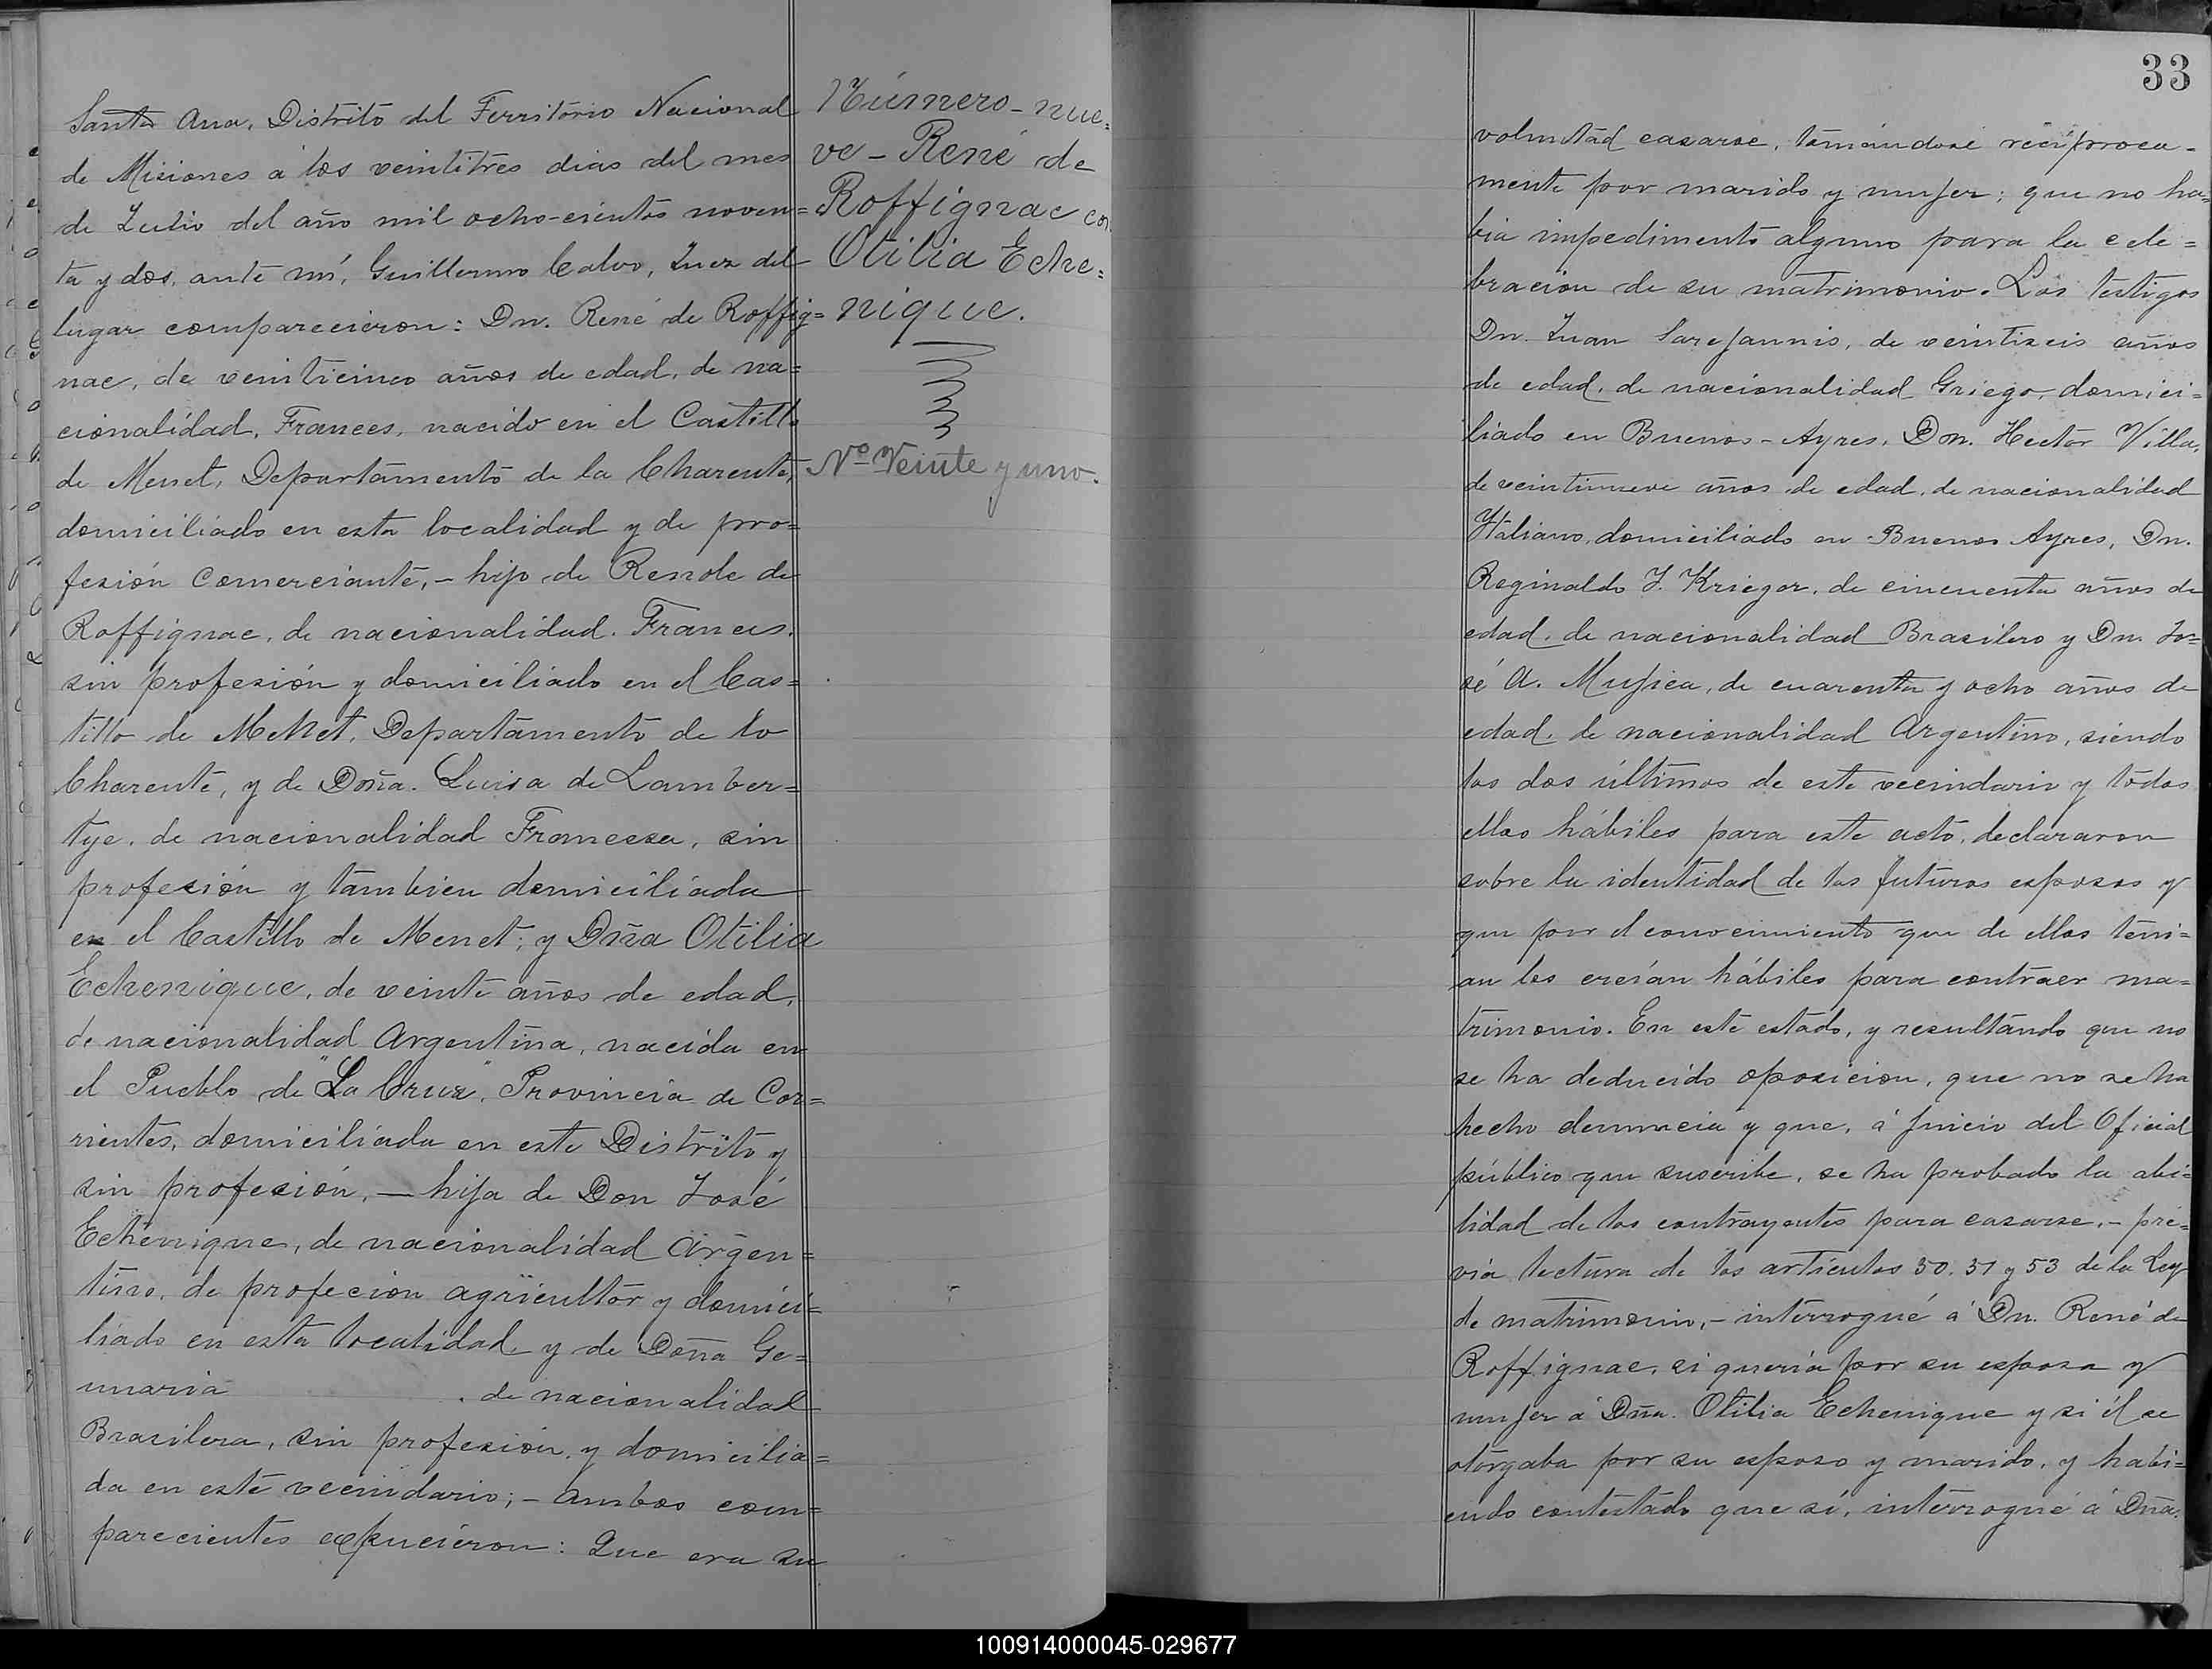 Santa Ana, Distrito del Territorio Nacional
de Misiones á los veintitres dias del mes
de Julio del año mil ocho-cientos noven=
ta y dos, ante mí, Guillermo Calvo, Juez del
lugar comparecieron: Dn. René de Roffig=
nac, de veinticinco años de edad, de na=
cionalidad, Frances, nacido en el Castillo
de Menet, Departamento de la Charente,
domiciliado en esta localidad y de pro=
fesión Comerciante,- hijo de Renole de
Roffignac, de nacionalidad. Frances.
sin profesión y domiciliado en el Cas=
tillo de Menet, Departamento de la
Charente, y de Doña. Luisa de Lamber=
tye, de nacionalidad Francesa, sin
profesión y tambien domiciliada
en el Castillo de Menet; y Dña Otilia
Echenique, de veinte años de edad,
de nacionalidad Argentina, nacida en
el Pueblo de "La Cruz", Provincia de Cor=
rientes, domiciliada en este Distrito y
sin profesión, — hija de Don José
Echenique, de nacionalidad Argen=
tino, de profecion agricultor y domici=
liado en esta localidad y de Doña Ge=
nuaria , de nacionalidad
Brasilera, sin profesión, y domicilia=
da en este vecindario; - Ambos com=
parecientes expucieron: Que era su
Número - nue=
ve - René de
Roffignac con
Otilia Eche=
nique.
No Veinte y uno.
33
voluntad casarse, tomándose recíproca-
mente por marido y mujer; que no ha=
bia impedimento alguno para la cele=
bracion de su matrimonio. Los testigos
Dn. Juan Sarejannis, de veintiseis años
de edad, de nacionalidad Griego, domici=
liado en Buenos-Ayres, Don. Hector Villa,
de veintinueve años de edad, de nacionalidad
Ytaliano, domiciliado en Buenos Ayres, Dn.
Reginaldo J. Krieger, de cincuenta años de
edad, de nacionalidad Brasilero y Dn. Jo=
sé A. Mujica, de cuarenta y ocho años de
edad, de nacionalidad Argentino, siendo
los dos últimos de este vecindario y todos
ellos hábiles para este acto, declararon
sobre la identidad de los futuros esposos y
que por el conocimiento que de ellos teni=
an los creían hábiles para contraer ma=
trimonio. En este estado, y resultando que no
se ha deducido oposicion, que no se ha
hecho denuncia y que, á juicio del Oficial
público que suscribe, se ha probado la abi=
lidad de los contrayentes para casarse,- pré=
via lectura de los artículos 50. 51 y 53 de la Ley
de matrimonio,- interrogué á Dn. René de
Roffignac, si quería por su esposa y
mujer á Dña. Otilia Echenique y si él se
otorgaba por su esposo y marido, y habi=
endo contestado que sí, interrogué á Dña.
100914000045-029677